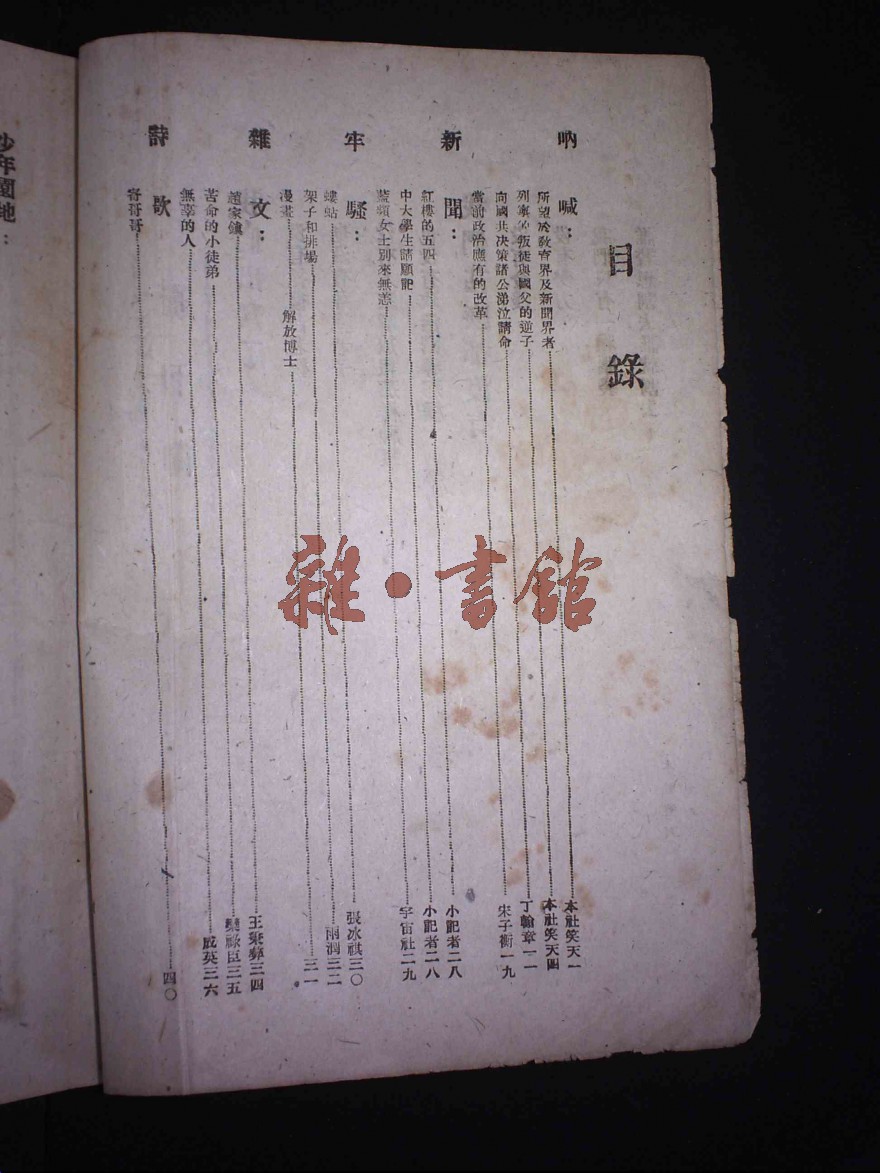 目錄
吶喊：
所望於教育界及新聞界者 本社笑天一
列寧的叛徒與國父的逆子 本社笑天四
向國共決策諸公涕泣請命 丁翰章一一
當前政治應有的改革 宋子衡一九
新聞：
紅樓的五四 小記者二八
中大學生請願記 小記者二八
藍蘋女士別來無恙 宇宙社二九
牢騷：
螻蛄 張冰祺三〇
架子和排場 雨潤三二
漫畫 解放博士 三一
雜文：
趙家鎮 王秉彝三四
苦命的小徒弟 祿臣三五
無辜的人 成英三六
詩歌
寄哥哥 四〇
少年園地：
雜·書館